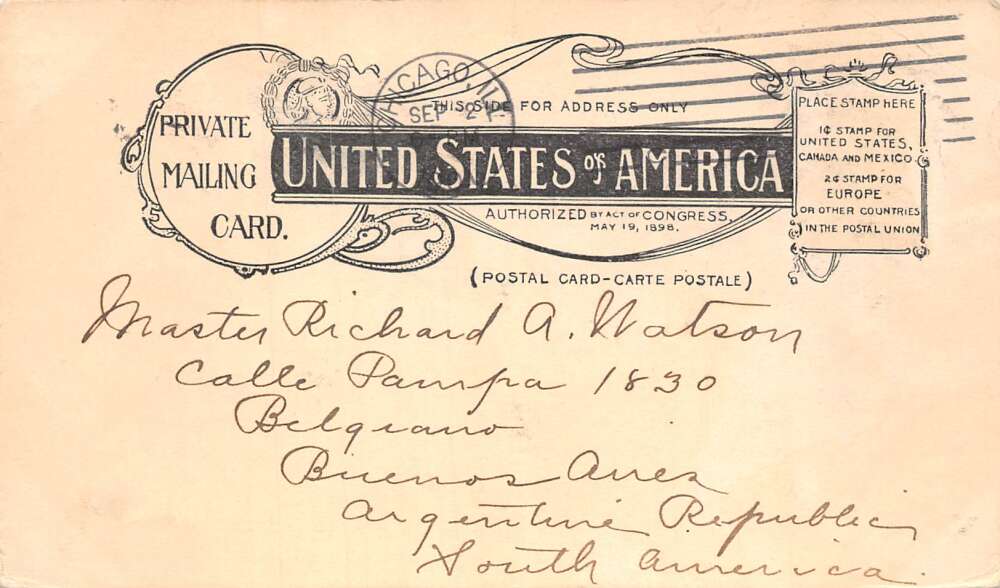 PRIVATE
MAILING
CARD.
CHICAGO, ILL.
SEP 2
THIS SIDE FOR ADDRESS ONLY
UNITED STATES OF AMERICA
AUTHORIZED BY ACT OF CONGRESS,
MAY 19, 1898.
(POSTAL CARD-CARTE POSTALE)
PLACE STAMP HERE
1¢ STAMP FOR
UNITED STATES,
CANADA AND MEXICO
2¢ STAMP FOR
EUROPE
OR OTHER COUNTRIES
IN THE POSTAL UNION
Master Richard A. Watson
Calle Pampa 1830
Belgrano
Buenos Aires
Argentine Republic
South America.